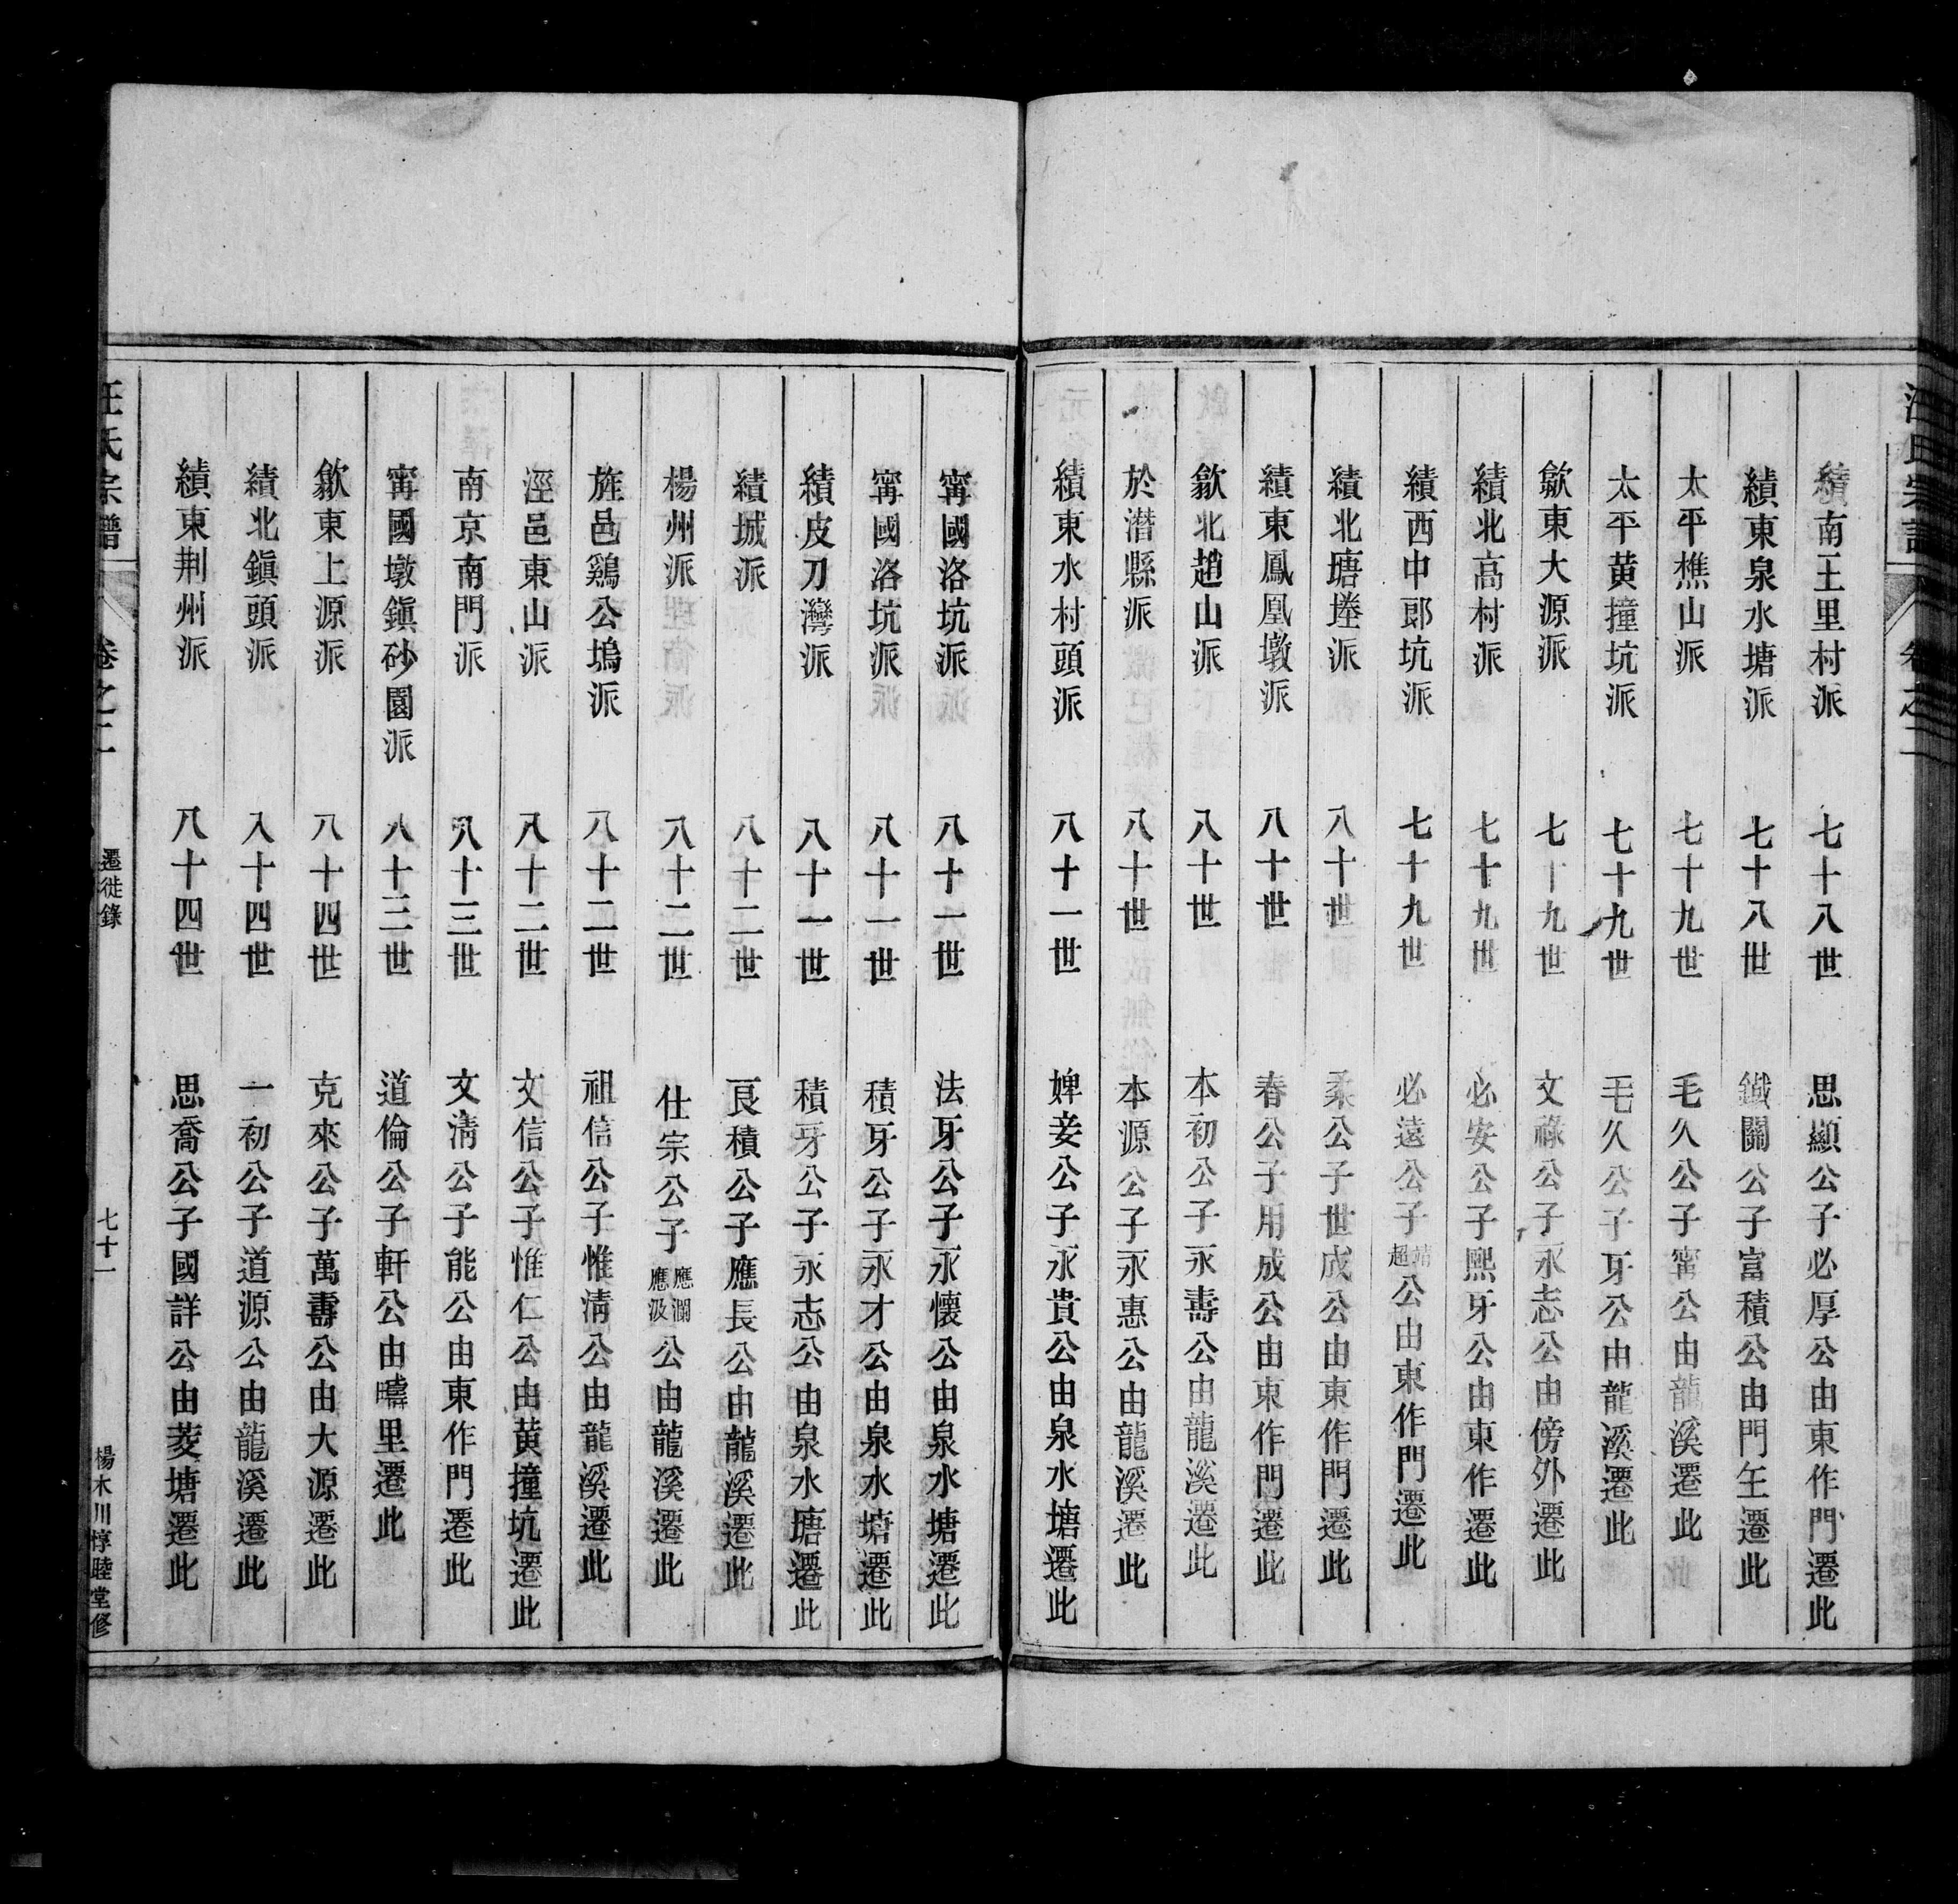 汪氏宗譜 卷之二
績南王里村派 七十八世 思顯公子必厚公由東作門遷此
績東泉水塘派 七十八世 鐵關公子富積公由門王遷此
太平樵山派 七十九世 毛久公子甯公由龍溪遷此
太平黃撞坑派 七十九世 毛久公子牙公由龍溪遷此
歙東大源派 七十九世 文祿公子永志公由傍外遷此
績北高村派 七十九世 必安公子熙牙公由東作遷此
績西中郎坑派 七十九世 必遠公子超公由東作門遷此
績北塘塝派 八十世 柔公子世成公由東作門遷此
績東鳳凰墩派 八十世 春公子用成公由東作門遷此
歙北趙山派 八十世 本初公子永壽公由龍溪遷此
於潛縣派 八十世 本源公子永惠公由龍溪遷此
績東水村頭派 八十一世 婢妾公子永貴公由泉水塘遷此
甯國洛坑派 八十一世 法牙公子永懷公由泉水塘遷此
甯國洛坑派 八十一世 積牙公子永才公由泉水塘遷此
績皮刀灣派 八十一世 積牙公子永志公由泉水塘遷此
績城派 八十二世 良積公子應長公由龍溪遷此
楊州派 八十二世 仕宗公子應瀾應汲公由龍溪遷此
旌邑鷄公塢派 八十二世 祖信公子惟清公由龍溪遷此
涇邑東山派 八十二世 文信公子惟仁公由黃撞坑遷此
南京南門派 八十三世 文清公子能公由東作門遷此
甯國墩鎮砂園派 八十三世 道倫公子軒公由疇里遷此
歙東上源派 八十四世 克來公子萬壽公由大源遷此
績北鎮頭派 八十四世 一初公子道源公由龍溪遷此
績東荆州派 八十四世 思喬公子國詳公由菱塘遷此
汪氏宗譜 卷之二 遷徙錄 七十一 楊木川惇睦堂修